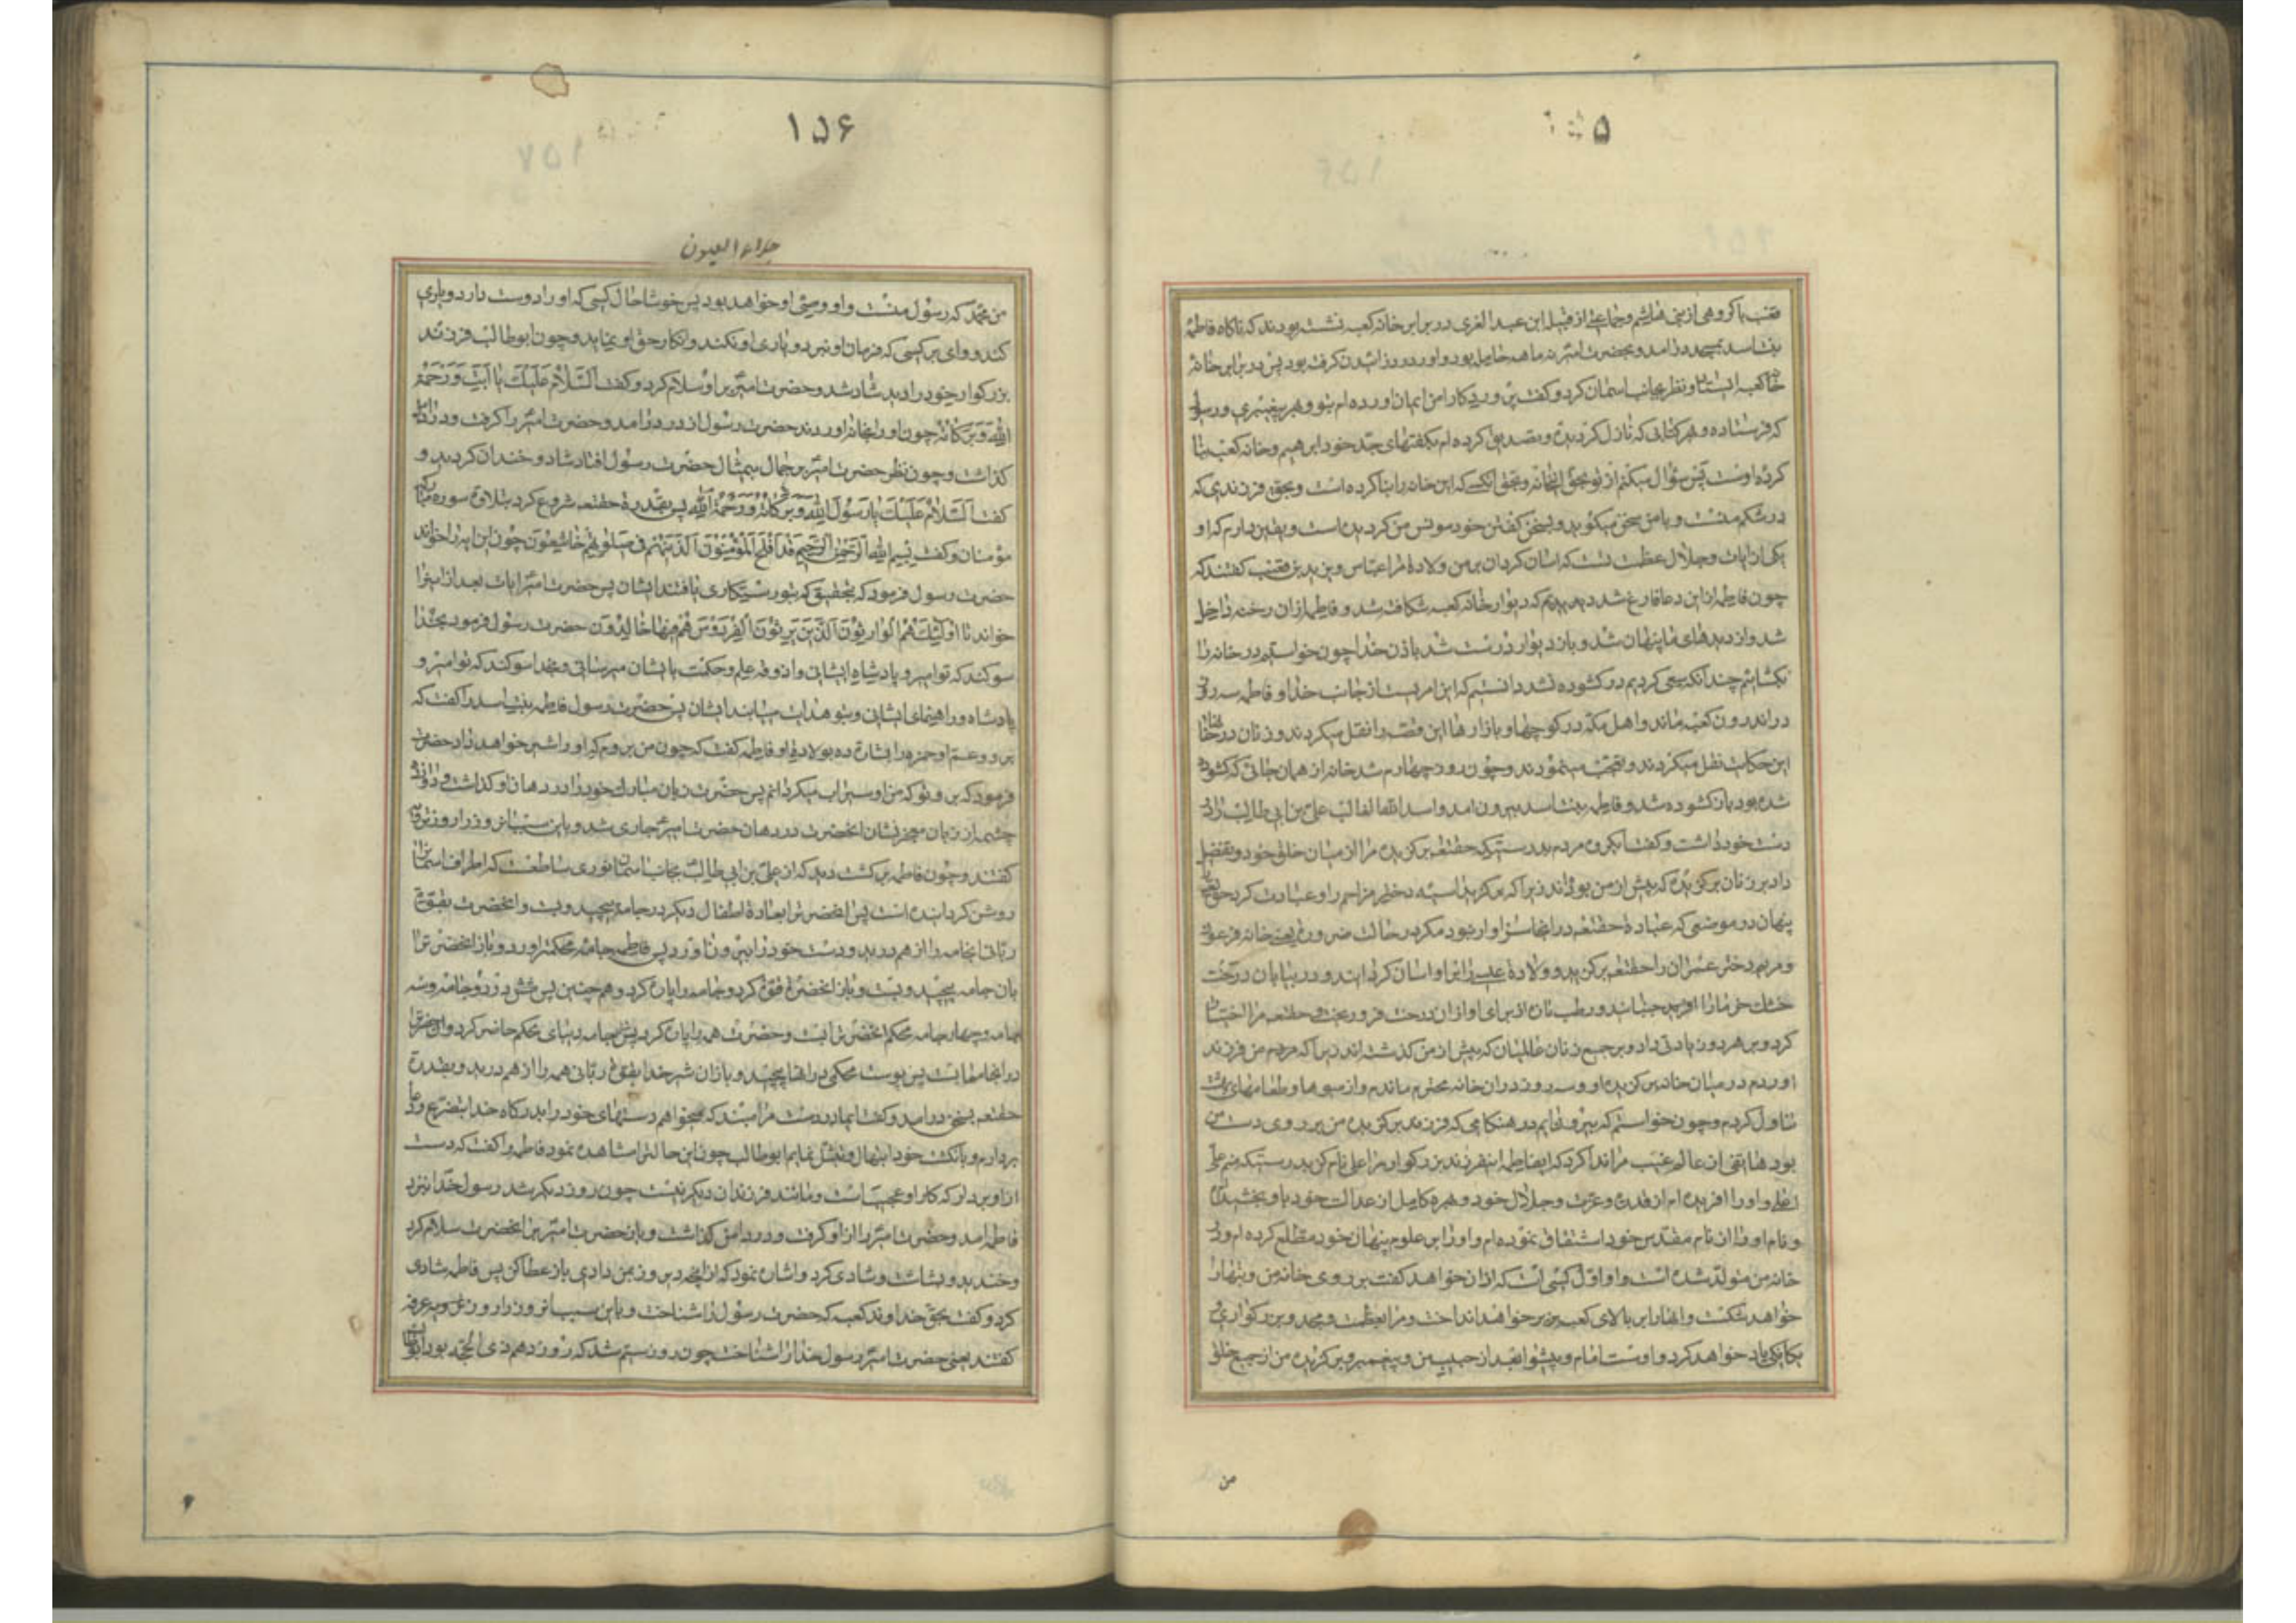 ۱۵۵
قعنب با کروهی از بنی هاشم و جماعتی از قبیله ابن عبد العزی در برابر خانه کعبه نشسته بودند که ناکاه فاطمه
بنت اسد بمسجد درامد و بحضرت امیر نه ماهه حامل بود و او را درد زائیدن کرفته بود پس در برابر خانه
کعبه ایستاد و نظر بجانب اسمان کرد و کفت پروردکارا من ایمان اورده ام بتو و بهر پیغمبری و رسولی
که فرستاده و هر کتابی که نازل کردیده و تصدیق کرده ام بکفتهای جد خود ابرهیم و خانه کعبه بنا
کرده اوست پس سؤال میکنم از تو بحق این خانه و بحق انکسی که این خانه را بنا کرده است و بحق فرزندی که
در شکم منست و با من سخن میکوید و بسخن کفتن خود مونس من کردیده است و یقین دارم که او
یکی از ایات و جلال عظمت تست که اسان کردان بر من ولادة مرا عباس و یزید بن قعنب کفتند که
چون فاطمه از این دعا فارغ شد دیدیم که دیوار خانه کعبه شکافته شد و فاطمه از ان رخنه داخل
شد و از دیدهای ما پنهان شد و باز دیوار درست شد باذن خدا چون خواستیم در خانه را
بکشائیم چندانکه سعی کردیم در کشوده نشد دانستیم که این امریست از جانب خدا و فاطمه سه روز
در اندرون کعبه ماند و اهل مکه در کوچها و بازارها این قصه را نقل میکردند و زنان در خانها
این حکایت نقل میکردند و تعجب مینمودند و چون روز چهارم شد خانه از همان جائی که کشوده
شده بود باز کشوده شد و فاطمه بنت اسد بیرون امد و اسد الله الغالب علی بن ابی طالب را در
دست خود داشت و کفت ایکروه مردم بدرستیکه حقتعه برکزیده مرا از میان خلق خود و تفضیل
داد بر زنان برکزیده که پیش از من بوده اند زیرا که برکزید اسیه دختر مزاحم را و عبادت کرد حق تعه
پنهان در موضعی که عبادة حقتعه در انجا سزاوار نبود مکر در حالت ضرورة یعنی خانه فرعون
و مریم دختر عمران را حقتعه برکزید و ولادة عیسی را بر او اسان کردانید و در بیابان درخت
خشک خرما را جنبانید و رطب تازه از برای او از ان درخت فرو ریخت و حقتعه مرا اختیار
کرد و بر هر دو زیادتی داد و بر جمیع زنان عالمیان که پیش از من کذشته اند زیرا که مردم من فرزند
اوردم در میان خانه برکزیده او و سه روز در ان خانه محترم ماندم و از میوها و طعامهای بهشت
تناول کردم و چون خواستم که بیرون ایم در هنکامی که فرزند برکزیده من بر روی دست من
بود هاتفی از عالم غیب مرا ندا کرد که ایفاطمه این فرزند بزرکوار مرا علی نام کن بدرستیکه منم علی
اعلی و او را افریده ام از قدرت و عزت و جلال خود و بهره کامل از عدالت خود باو بخشیده ام
و نام او را از نام مقدس خود اشتقاق نموده ام و او را بر علوم پنهان خود مطلع کرده ام و در
خانه من متولد شده است و او اول کسی است که اذان خواهد کفت بر روی خانه من و بتها را
خواهد شکست و انها را بر بالای کعبه بزیر خواهد انداخت و مرا بعظمت و مجد و بزرکواری و
یکانکی یاد خواهد کرد و اوست امام و پیشوا بعد از حبیب من و پیغمبر و برکزیده من از جمیع خلق
من
۱۵۶
جلاء العیون
من محمد که رسول منست و او وصی او خواهد بود پس خوشا حال کسی که او را دوست دارد و یاری
کند و وای بر کسی که فرمان او نبرد و یاری او نکند و انکار حق او نماید و چون ابوطالب فرزند
بزرکوار خود را دید شاد شد و حضرت امیر بر او سلام کرد و کفت السلام علیک یا ابت و رحمة
الله و برکاته چون او را بخانه اوردند حضرت رسول از در درامد و حضرت امیر را کرفت و در دامن
کذاشت و چون نظر حضرت امیر بر جمال بیمثال حضرت رسول افتاد شاد و خندان کردید و
کفت السلام علیک یا رسول الله و برکاته و رحمة الله پس بقدرة حقتعه شروع کرد بتلاوة سوره مبارکه
مؤمنان و کفت بسم الله الرحمن الرحیم قد افلح المؤمنون الذین هم فی صلوتهم خاشعون چون این ایه را خواند
حضرت رسول فرمود که بتحقیق که بتو رستیکاری یافتند ایشان پس حضرت امیر ایات بعد از اینرا
خواند تا اولئک هم الوارثون الذین یرثون الفردوس هم فیها خالدون حضرت رسول فرمود بخدا
سوکند که تو امیر و پادشاه ایشانی و از وفه علم و حکمت بایشان میرسانی و بخدا سوکند که تو امیر و
پادشاه و راهنمای ایشانی و بتو هدایت مییابند ایشان پس حضرت رسول فاطمه بنت اسد را کفت که
برو و عم او حمزه را بشارة ده بولادة او فاطمه کفت که چون من بروم که او را شیر خواهد داد حضرت
فرمود که برو تو که من او را سیراب میکردانم پس حضرت زبان مبارک خود را در دهان او کذاشت و دوازده
چشمه از زبان معجز نشان انحضرت در دهان حضرت امیر جاری شد و باین سبب انروز را روز ترویه
کفتند و چون فاطمه برکشت دید که از علی بن ابی طالب بجانب اسمان نوری ساطعست که اطراف اسمان را
روشن کردانیده است پس انحضرت را بعادة اطفال دیکر در جامه پیچید و بست و انحضرت بقوة
ربانی انجامه را از هم درید و دست خود را بیرون اورد پس فاطمه جامه محکمتر اورد و باز انحضرت را
بان جامه پیچید و بست و باز انحضرت قوة کرد و جامه را پاره کرد و همچنین پس شش دو جامه و سه
جامه و چهار جامه محکم انحضرت را بست و حضرت همه را پاره کرد پس جامه دیبای محکم حاضر کرد و انحضرت را
در انجامها بست پس پوست محکمی در انها پیچید و باز ان شیر خدا بقوة ربانی همه را از هم درید و بقدرة
حقتعه بسخن درامد و کفت ایمادر دست مرا مبند که میخواهم دستهای خود را بدرکاه خدا بتضرع و دعا
بردارم و بانکشت خود ابتهال و تبتل نمایم ابوطالب چون این حالت را مشاهده نمود فاطمه را کفت که دست
از او بردار که کار او عجیب است و مانند فرزندان دیکر نیست چون روز دیکر شد رسول خدا نزد
فاطمه امد و حضرت امیر را از او کرفت و در دامن کذاشت و باز حضرت امیر بر انحضرت سلام کرد
و خندید و بشاشت و شادی کرد و اشاره نمود که از انچه دیروز بمن دادی باز عطا کن پس فاطمه شادی
کرد و کفت بحق خداوند کعبه که حضرت رسول را شناخت و باین سبب انروز را روز عرفه
کفتند یعنی حضرت امیر رسول خدا را شناخت چون روز سیم شد که روز دهم ذی الحجه بود ابوطالب